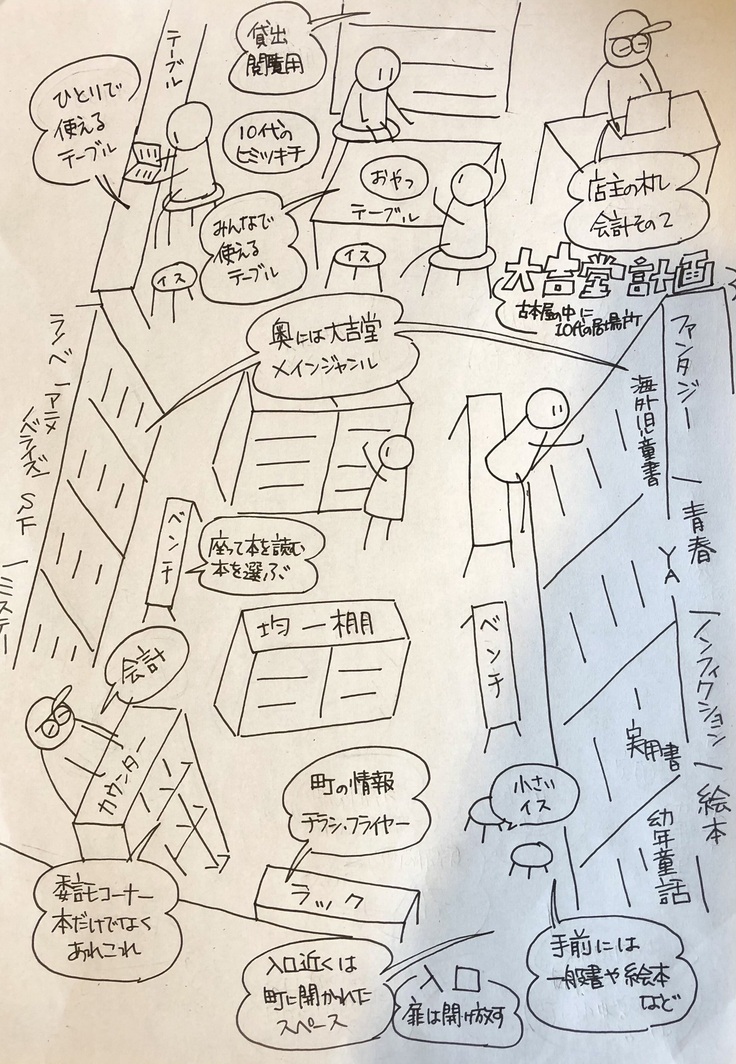 テーブル
貸出
閲覧用
ひとりで
使える
テーブル
10代の
ヒミツキチ
おやつ
テーブル
みんなで
使える
テーブル
イス
イス
店主の机
会計その2
大吉堂計画
古本屋の中に
10代の居場所
奥には大吉堂
メインジャンル
ラノベ ー アニメ
ノベライズ
SF
ー ミステリー
ファンタジー
海外児童書
ー 青春
YA
ー ノンフィクション ー 絵本
実用書
幼年童話
ベンチ
座って本を読む
本を選ぶ
均一棚
ベンチ
会計
カウンター
町の情報
チラシ・フライヤー
小さい
イス
委託コーナー
本だけでなく
あれこれ
ラック
入口近くは
町に開かれた
スペース
入口
扉は開け放す
手前には
一般書や絵本
など